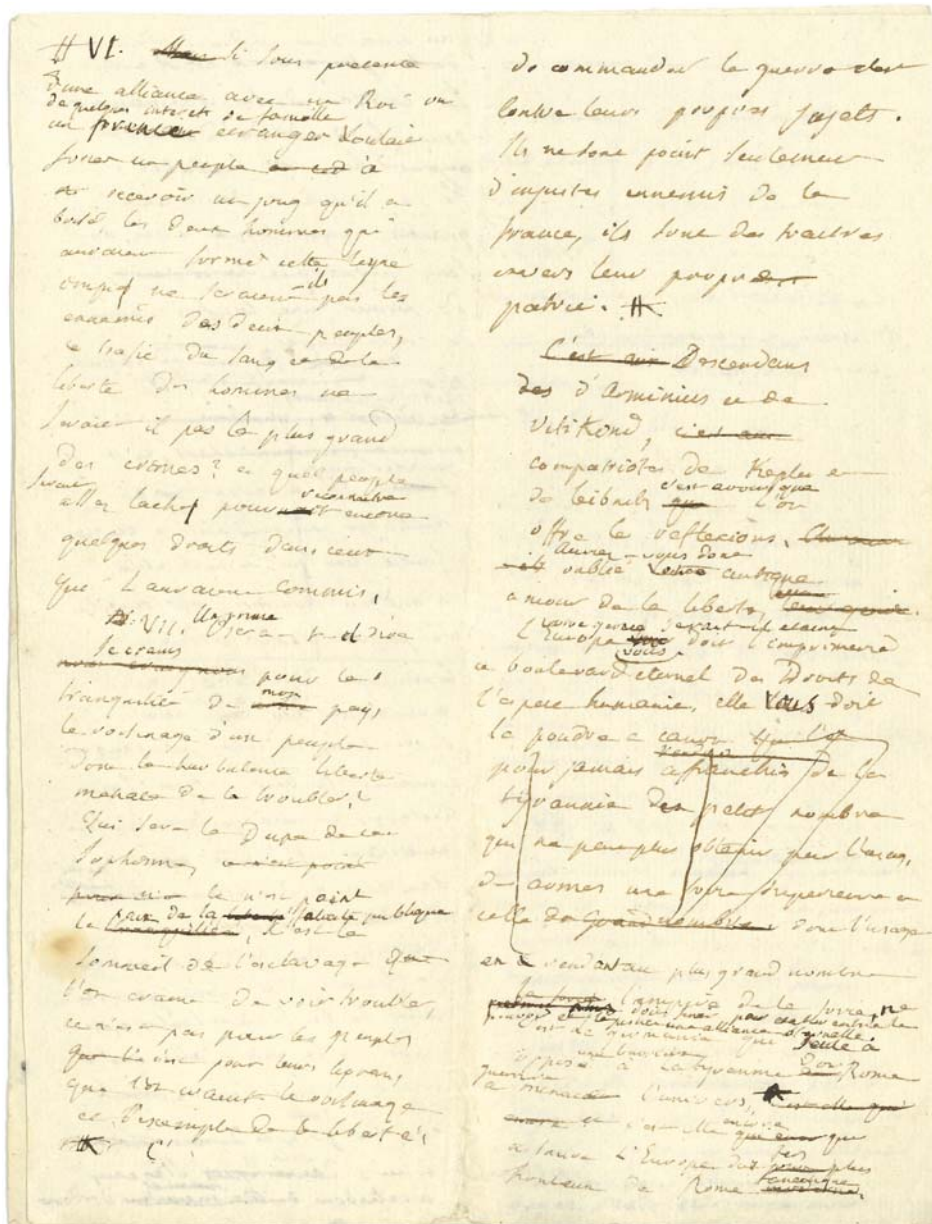 # VI. Si sous pretexte
d'une alliance avec un Roi ou
de quelques interets de famille
un prince etranger voulait
forcer un peuple à
recevoir un joug qu'il a
brisé, les deux hommes qui
auraient formé cette ligue
impie ne seraient ils pas les
ennemis des deux peuples,
le trafic du sang et de la
liberté des hommes ne
serait il pas le plus grand
des crimes? et quel peuple
serait
assez lache pour reconnaitre encore
quelques droits dans ceux
qui l'auraient commis.
VII. Un prince osera-t-il dire
Je crains
pour la
tranquilité de mon pays
le voisinage d'un peuple
dont la turbulente liberté
menace de la troubler?
Qui sera la Dupe de ce
Sophisme, 
ce n'est point
la paix de la publique, c'est le
sommeil de l'esclavage que
l'on craint de voir troubler,
ce n'est pas pour les peuples
c'est pour leurs tyrans,
que l'on craint le voisinage
et l'exemple de la liberté.
de commander la guerre
contre leurs propres sujets.
Ils ne sont point seulement
d'injustes ennemis de la
france, ils sont des traitres
envers leur propre
patrie. #
C'est aux Descendans
d'Arminius et de
Vitikond, c'est aux
compatriotes de Kepler et
de Leibnitz c'est à vous que l'on
offre ces reflexions.
Auriez-vous donc
oublié votre antique
amour de la liberté,
L'Europe vous doit l'imprimerie
ce boulevard eternel des Droits de
l'espece humaine, elle vous doit
la poudre a canon
pour jamais afranchis de la
tyrannie du petit nombre
qui ne peut plus obtenir par l'usage
des armes une force superieure a
celle du grand nombre dont l'usage
en rendant au plus grand nombre
la force l'empire de la force, ne
une alliance eternelle.
C'est la Germanie qui seule a
opposé a la tyrannie Rome
guerriere
a menacé l'univers,
c'est elle encore qui
a sauvé l'Europe des fers plus
honteux de Rome